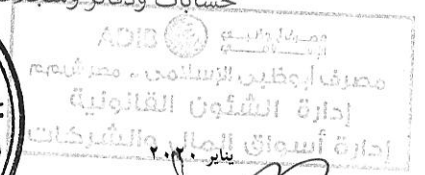 حسابات ودفاتر وسجلات
ADIB
مصرف أبوظبي الإسلامي - مصر ش.م.م
إدارة الشئون القانونية
إدارة أسواق المال والشركات
يناير ٢٠٢٠